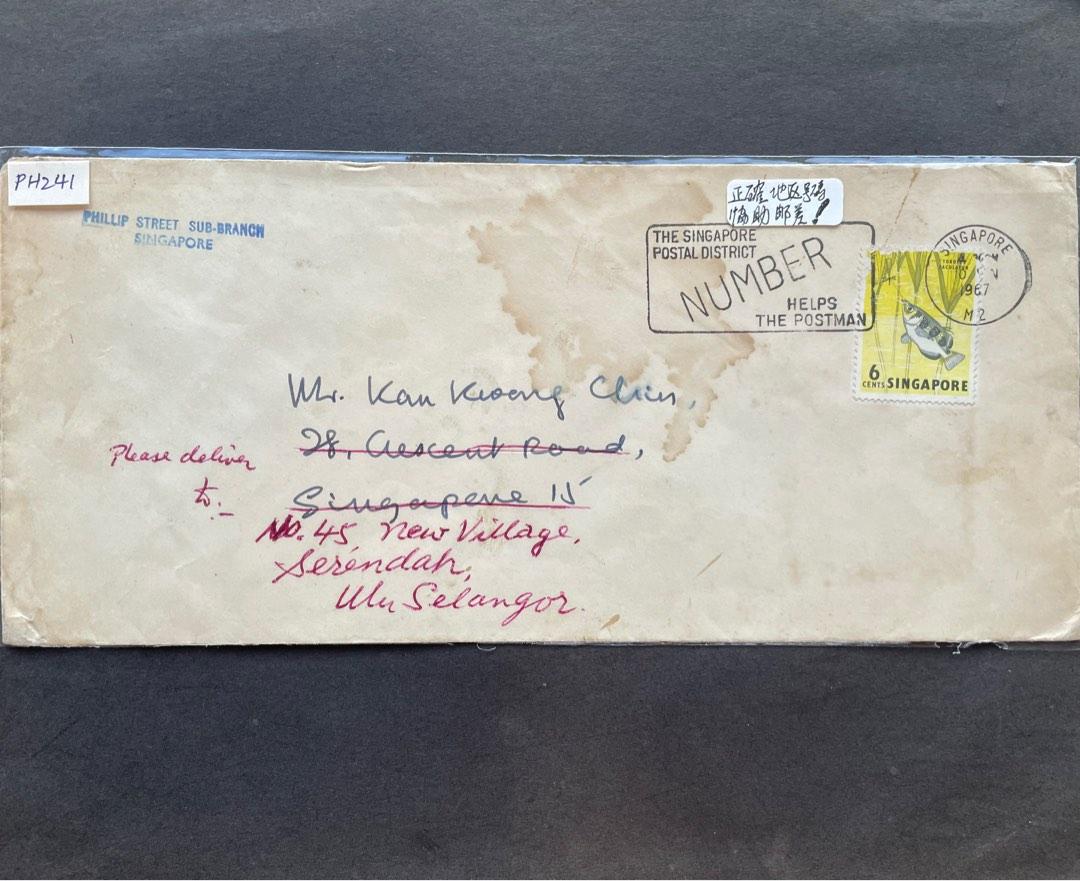 PH241
PHILLIP STREET SUB-BRANCH
SINGAPORE
正確地区号码
协助邮差!
THE SINGAPORE
POSTAL DISTRICT
NUMBER
HELPS
THE POSTMAN
SINGAPORE
1967
M2
6
CENTS SINGAPORE
Mr. Kan Kwong Chin,
28, Crescent Road,
Singapore 15
Please deliver
to:-
No. 45 New Village,
Serendah,
Ulu Selangor.